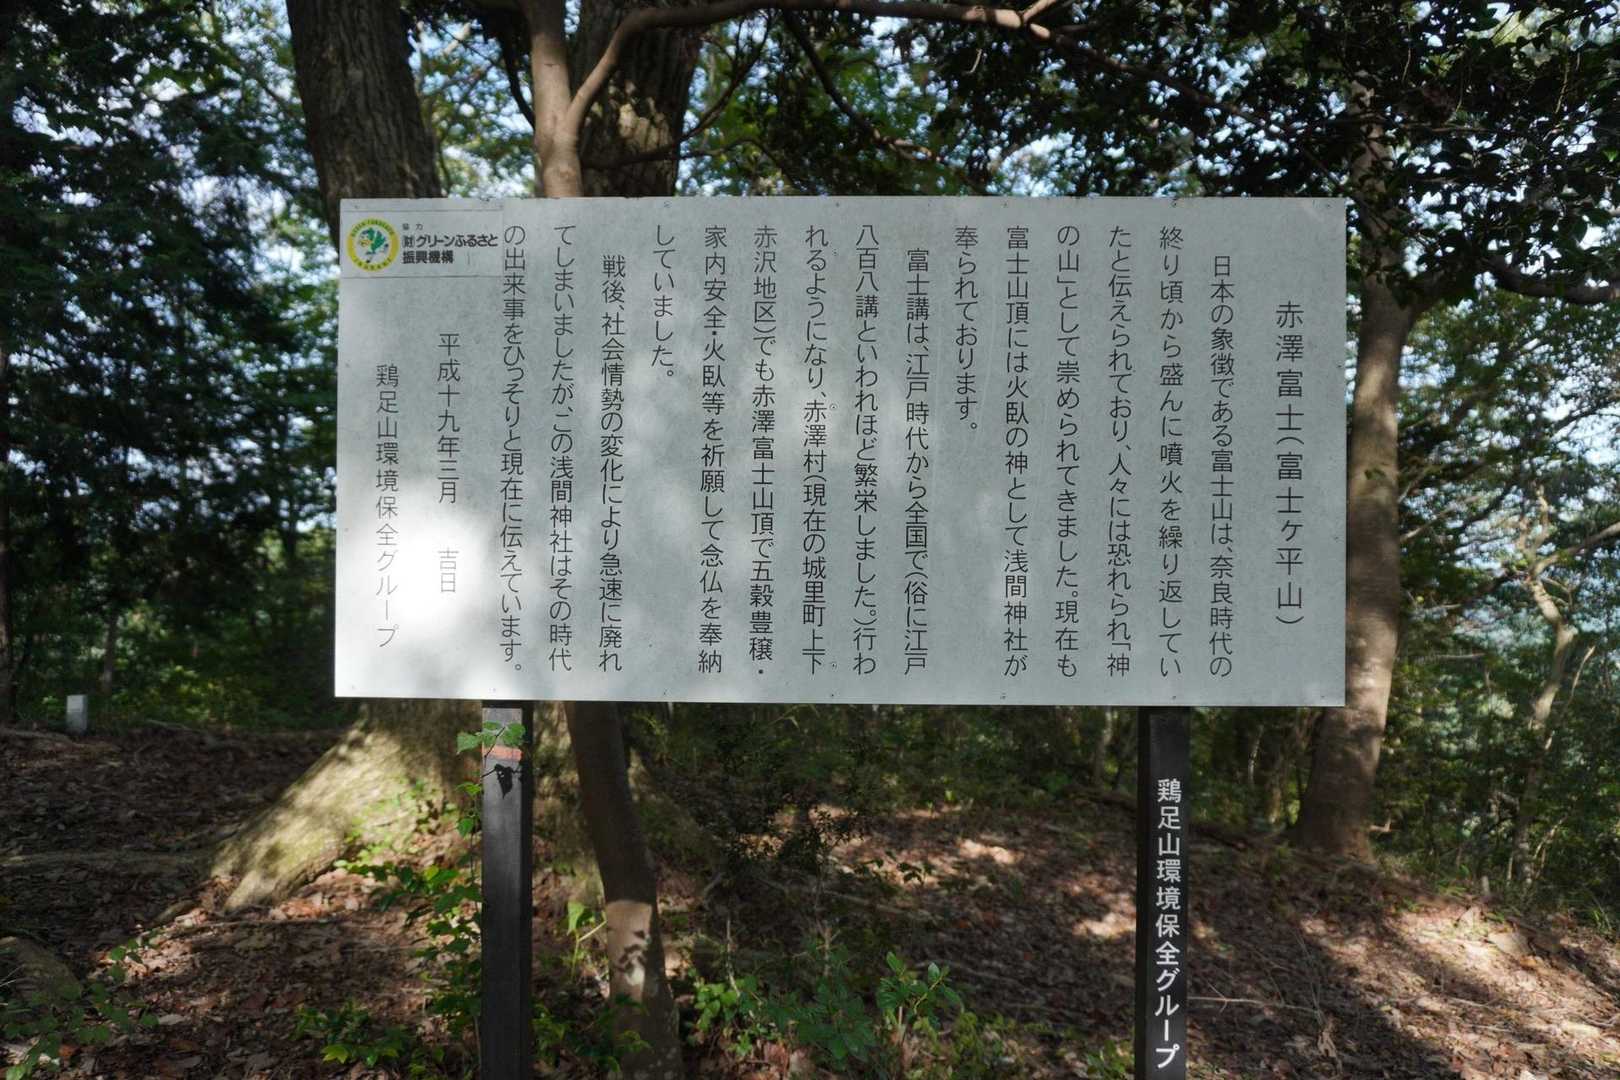 赤澤富士(富士ヶ平山)
日本の象徴である富士山は、奈良時代の
終り頃から盛んに噴火を繰り返してい
たと伝えられており、人々には恐れられ「神
の山」として崇められてきました。現在も
富士山頂には火臥の神として浅間神社が
奉られております。
富士講は、江戸時代から全国で(俗に江戸
八百八講といわれほど繁栄しました。)行わ
れるようになり、赤澤村(現在の城里町上下
赤沢地区)でも赤澤富士山頂で五穀豊穣・
家内安全・火臥等を祈願して念仏を奉納
していました。
戦後、社会情勢の変化により急速に廃れ
てしまいましたが、この浅間神社はその時代
の出来事をひっそりと現在に伝えています。
平成十九年三月 吉日
鶏足山環境保全グループ
協力
(財)グリーンふるさと
振興機構
鶏足山環境保全グループ